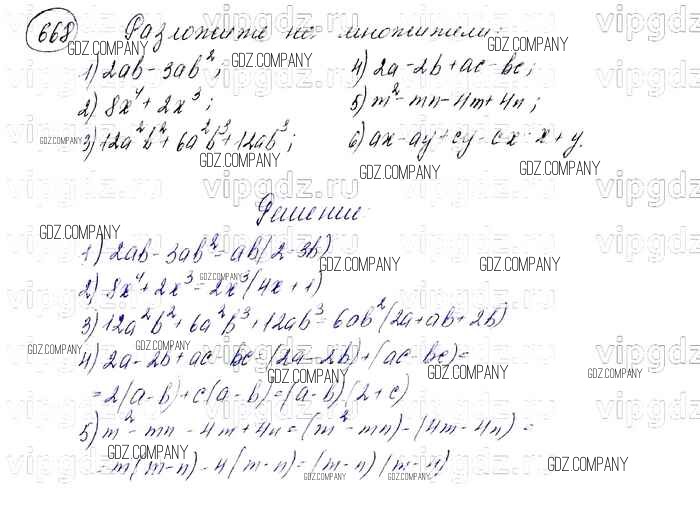 668 Разложите на множители:
1) 2ab - 3ab²;
2) 8x⁴ + 2x³;
3) 12a²b² + 6a²b³ + 12ab³;
4) 2a - 2b + ac - bc;
5) m² - mn - 4m + 4n;
6) ax - ay + cy - cx - x + y.
Решение:
1) 2ab - 3ab² = ab(2 - 3b)
2) 8x⁴ + 2x³ = 2x³(4x + 1)
3) 12a²b² + 6a²b³ + 12ab³ = 6ab²(2a + ab + 2b)
4) 2a - 2b + ac - bc = (2a - 2b) + (ac - bc) =
= 2(a - b) + c(a - b) = (a - b)(2 + c)
5) m² - mn - 4m + 4n = (m² - mn) - (4m - 4n) =
= m(m - n) - 4(m - n) = (m - n)(m - 4)
GDZ.COMPANY
vipgdz.ru